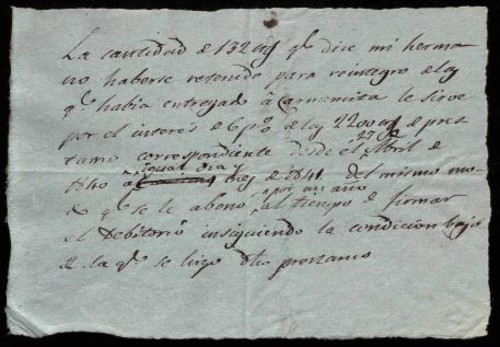 La cantidad de 132 rs qe dice mi herma
no haberse retenido para reintegro de los
qe habia entregado á Carmencita le sirve
por el interés de 6 p% de los 2200 rs de pres
27 de
tamo correspondiente desde el Abril de
igual dia
1840 á de 1841 del mismo mo
por un año
do qe se le abonó al tiempo de firmar
el Debitorio insiguiendo la condicion bajo
de la qe se hizo dho prestamo